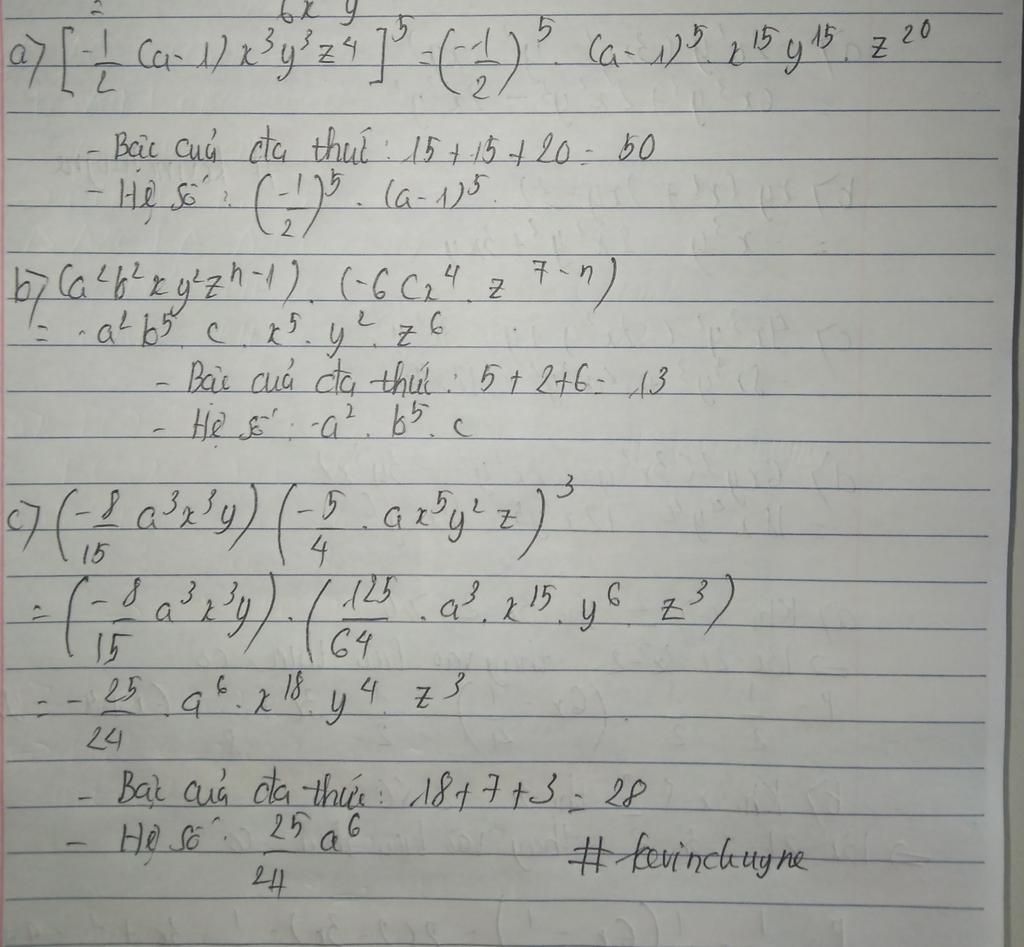 = 6x y
a) [-1/2 (a-1) x³y³z⁴]⁵ = (-1/2)⁵ . (a-1)⁵ . x¹⁵y¹⁵ . z²⁰
- Bậc cuả đa thức : 15 + 15 + 20 = 50
- Hệ số : (-1/2)⁵ . (a-1)⁵.
b) (a²b²xy²zⁿ⁻¹) . (-6cx⁴ . z⁷⁻ⁿ)
= -a²b⁵ . c . x⁵ . y² . z⁶
- Bậc cuả đa thức : 5 + 2 + 6 = 13
- Hệ số : -a² . b⁵ . c
c) (-8/15 a³x³y) (-5/4 . ax⁵y²z)³
= (-8/15 a³x³y) . (125/64 . a³ . x¹⁵ . y⁶ z³)
= - 25/24 . a⁶ . x¹⁸ . y⁴ . z³
- Bậc cuả đa thức : 18 + 7 + 3 = 28
- Hệ số : 25/24 a⁶
# kevinchuyne